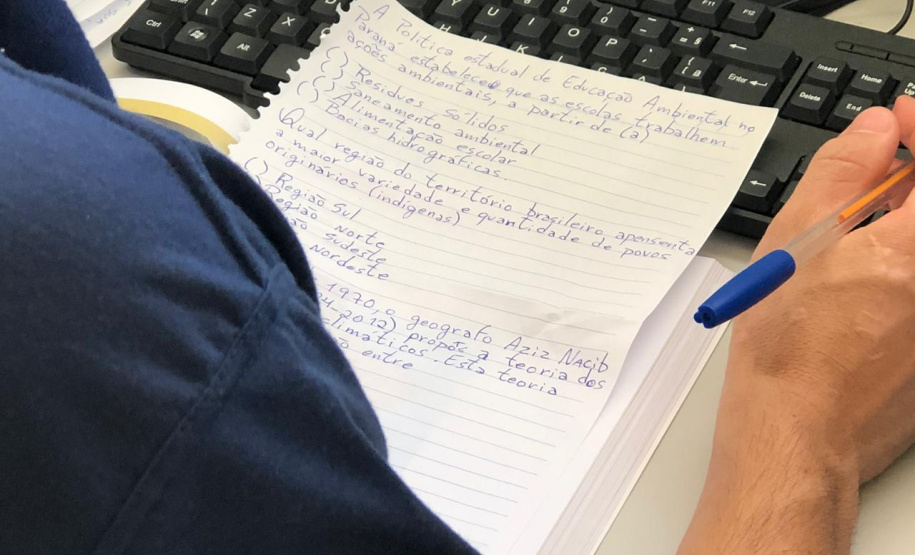 A Política estadual de Educação Ambiental no
Paraná estabelece que as escolas trabalhem
ações ambientais, a partir de (a)
( ) Resíduos Sólidos
( ) Saneamento ambiental
( ) Alimentação escolar
( ) Bacias hidrográficas.
Qual região do território brasileiro apensenta
a maior variedade e quantidade de povos
originários (indígenas)
( ) Região Sul
Região Norte
Sudeste
Nordeste
1970, o geografo Aziz Nacib
24-2012) propôs a teoria dos
climáticos. Esta teoria
entre
Ctrl
Alt
Z
X
C
Y
U
I
O
P
K
L
F11
F12
Enter
Insert
Home
Delete
End